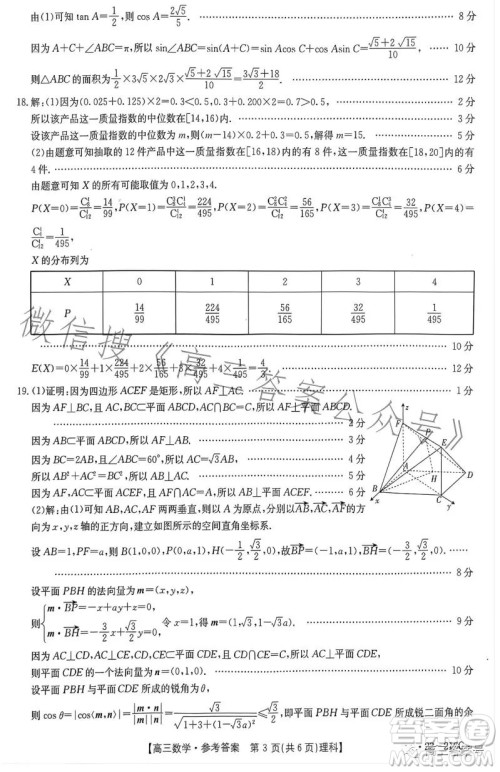 由(1)可知 tan A=1/2,则 cos A=2√5/5. 8分
因为 A+C+∠BAC=π,所以 sin∠ABC=sin(A+C)=sin Acos C+cos Asin C=(√5+2√15)/10, 10分
则△ABC 的面积为 1/2×3√5×2√3×(√5+2√15)/10=(3√3+18)/2. 12分
18.解:(1)因为(0.025+0.125)×2=0.3<0.5,0.3+0.200×2=0.7>0.5, 2分
所以该产品这一质量指数的中位数在[14,16)内. 3分
设该产品这一质量指数的中位数为 m,则(m-14)×0.2+0.3=0.5,解得 m=15. 5分
(2)由题意可知抽取的12件产品中这一质量指数在[16,18)内的有8件,这一质量指数在[18,20]内的有
4件. 6分
由题意可知 X 的所有可能取值为 0,1,2,3,4.
P(X=0)= =14/99,P(X=1)= =224/495,P(X=2)= =56/165,P(X=3)= =32/495,P(X=4)=
=1/495,
X 的分布列为
X 0 1 2 3 4
P 14/99 224/495 56/165 32/495 1/495
10分
E(X)=0×14/99+1×224/495+2×56/165+3×32/495+4×1/495=4/3. 12分
19.(1)证明:因为四边形 ACEF 是矩形,所以 AF⊥AC. 1分
因为 AF⊥BC,AC,BC⊂平面 ABCD,AC∩BC=C,所以 AF⊥平面 ABCD.
2分
因为 AB⊂平面 ABCD,所以 AF⊥AB. 3分
因为 BC=2AB,且∠ABC=60°,所以 AC=√3AB, 4分
所以 AB²+AC²=BC²,所以 AB⊥AC. 5分
因为 AF,AC⊂平面 ACEF,且 AF∩AC=A,所以 AB⊥平面 ACEF. 6分
(2)解:由(1)可知 AB,AC,AF 两两垂直,则以 A 为原点,分别以AB,AC,AF的方
向为 x,y,z 轴的正方向,建立如图所示的空间直角坐标系.
z
F
E
A
D
H
B
C
x
y
设 AB=1,PF=a,则 B(1,0,0),P(0,a,1),H(-1/2,√3/2,0),故BP=(-1,a,1),BH=(-3/2,√3/2,0).
8分
设平面 PBH 的法向量为 m=(x,y,z),
则{m·BP=-x+ay+z=0, m·BH=-3/2x+√3/2y=0, 令 x=1,得 m=(1,√3,1-√3a). 9分
因为 AC⊥CD,AC⊥CE,CD∩CE=C,所以 AC⊥平面 CDE,
则平面 CDE 的一个法向量为 n=(0,1,0). 10分
设平面 PBH 与平面 CDE 所成的锐角为 θ,
则 cos θ=|cos⟨m,n⟩|=|m·n|/|m||n|=√3/√(1+3+(1-√3a)²),即平面 PBH 与平面 CDE 所成锐二面角的余
【高三数学·参考答案 第 3 页(共 6 页)理科】
微信搜《高三答案公众号》